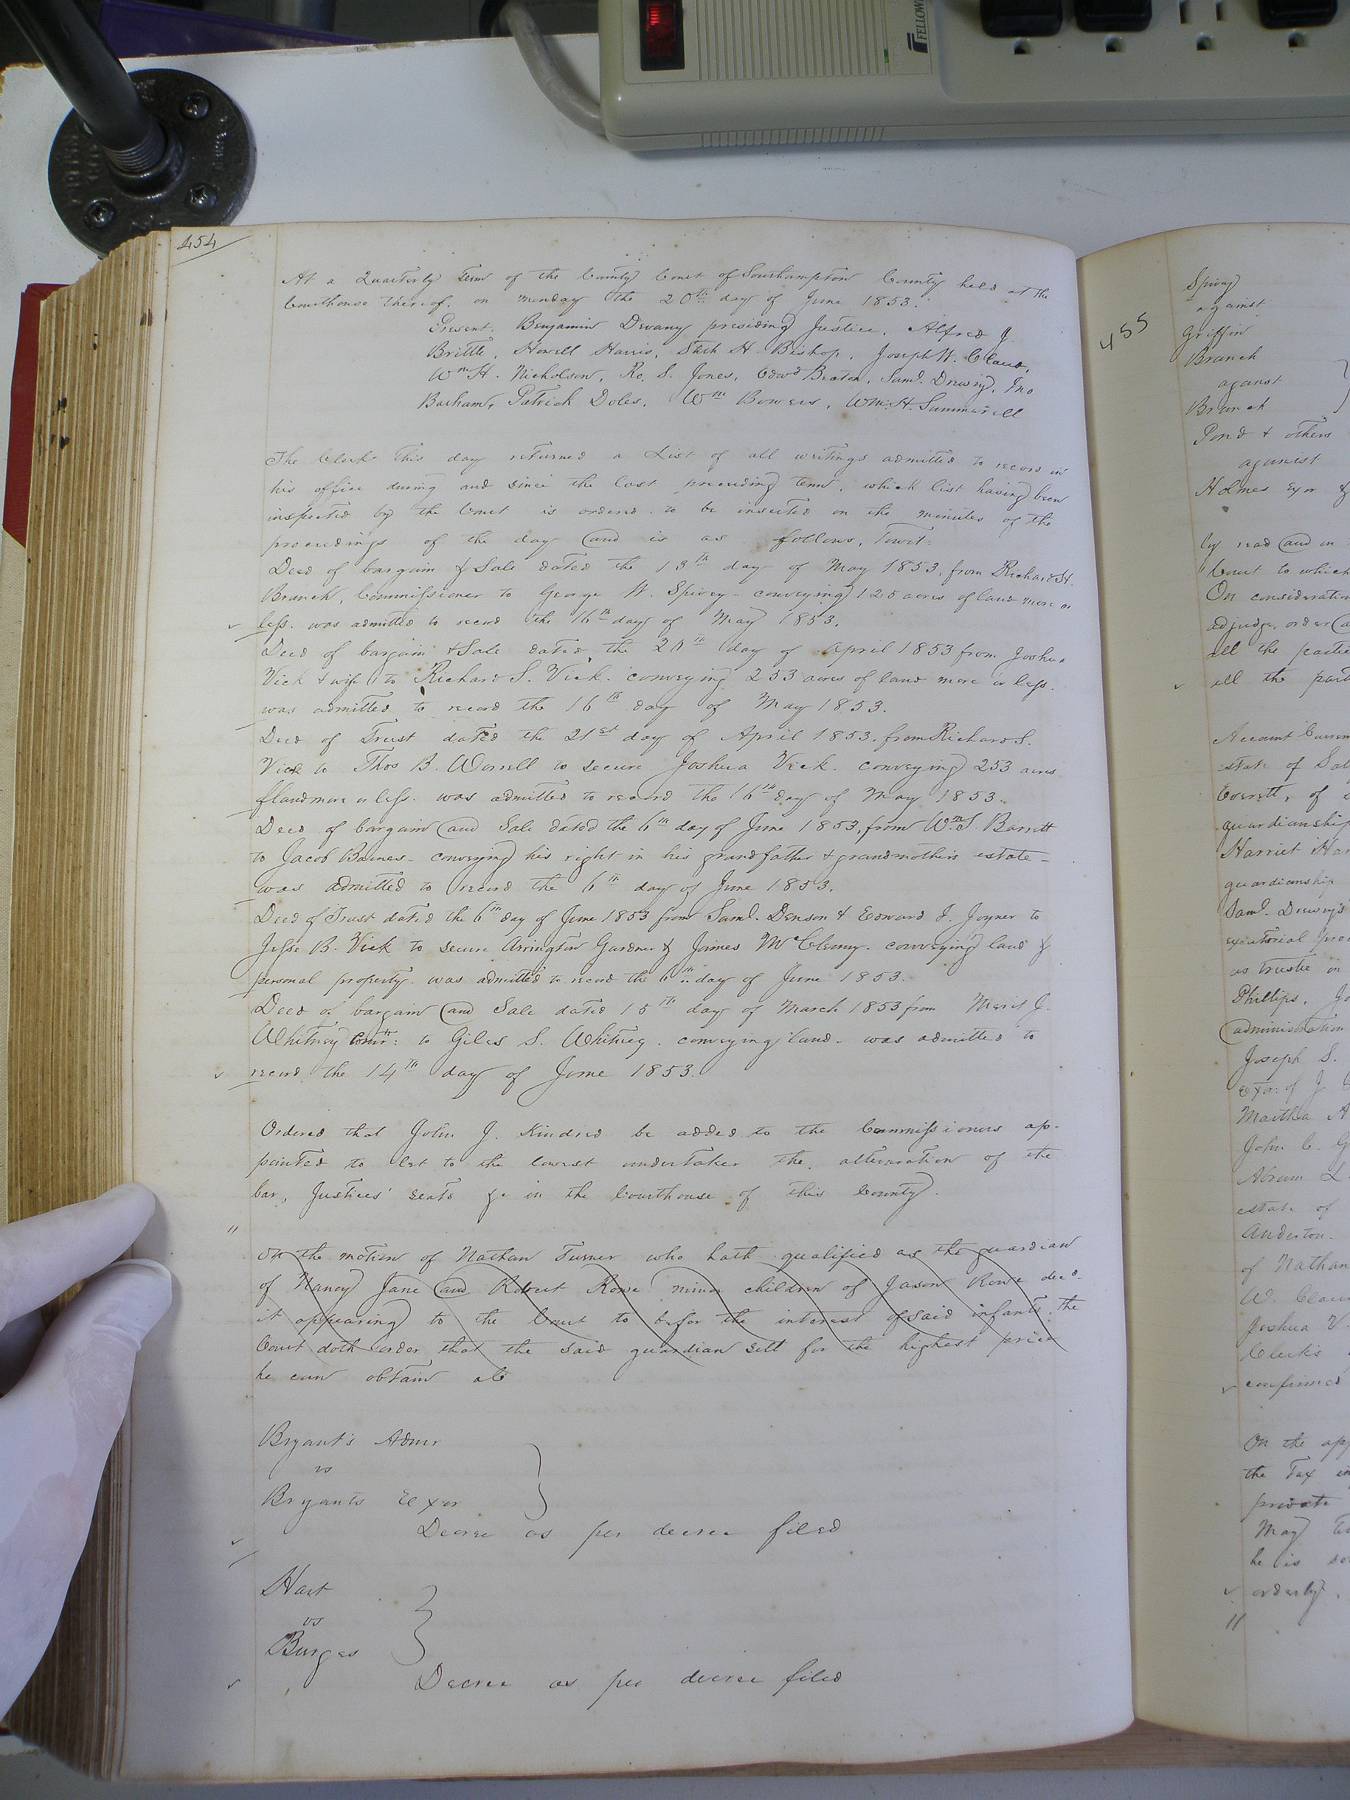 FELLOW
454
At a Quarterly Term of the County Court of Southampton County held at the
Courthouse thereof, on Monday the 20th day of June 1853.
Present. Benjamin Devany presiding Justice, Alfred J.
Brittle, Howell Harris, H. Bishop, Joseph W. Claud,
Wm H. Nicholson, Ro. S. Jones, Edwd Beaton, Saml. Drewry, Jno
Barham, Patrick Doles, Wm Bowers, Wm. H. Summerell
The Clerk this day returned a List of all writings admitted to record in
his office during and since the last preceeding term, which list having been
inspected by the Court is ordered to be inserted on the minutes of the
proceedings of the day and is as follows, Towit:
Deed of bargain & Sale dated the 13th day of May 1853, from Richard H.
Branch, Commissioner to George W. Spivey conveying 125 acres of land more or
less. was admitted to record the 16th day of May 1853.
Deed of bargain & Sale dated the 20th day of April 1853 from Joshua
Vick & wife to Richard S. Vick. conveying 253 acres of land more or less.
was admitted to record the 16th day of May 1853.
Deed of Trust dated the 21st day of April 1853, from Richard S.
Vick to Thos B. Worrell to secure Joshua Vick. conveying 253 acres
of land more or less. was admitted to record the 16th day of May 1853.
Deed of bargain and Sale dated the 6th day of June 1853, from Wm. S. Barrett
to Jacob Barnes - conveying his right in his grandfather & grandmother's estate -
was admitted to record the 6th day of June 1853.
Deed of Trust dated the 6th day of June 1853 from Saml. Denson & Edward J. Joyner to
Jesse B. Vick to secure Arrington Gardner & James McClenny. conveying land &
personal property. was admitted to record the 6th day of June 1853.
Deed of bargain and Sale dated 15th day of March 1853 from Merit J.
Whitney to Giles S. Whitney. conveying land - was admitted to
record the 14th day of June 1853.
Ordered that John J. Kindred be added to the Commissioners ap-
pointed to let to the lowest undertaker the alteration of the
bar, Justices' seats &c in the Courthouse of this County.
On the motion of Nathan Turner who hath qualified as the guardian
of Nancy Jane and Robert Rowe minor children of Jason Rowe decd.
it appearing to the Court to be for the interest of said infants the
Court doth order that the said guardian sell for the highest price
he can obtain
Bryant's Admr
vs
Bryants Exor
Decree as per decree filed
Hart
vs
Burges
Decree as per decree filed
455
Spivey
against
Griffin
Branch
against
Branch
Pond & others
against
Holmes Exor &
by read and in
Court to which
On consideration
adjudge, order
all the parties
all the part
Account Curren
state of Sal
Everett, of
guardianship
Harriet Har
guardianship
Saml. Drewry's
executorial
as trustee in
Phillips, Jo
administration
Joseph S.
Exor of J.
Martha A
John C. G
Abram L
estate of
Anderton.
of Nathan
W. Claud
Joshua V
Clerk's
confirmed
On the app
the Tax
private
May
he is so
orderly.